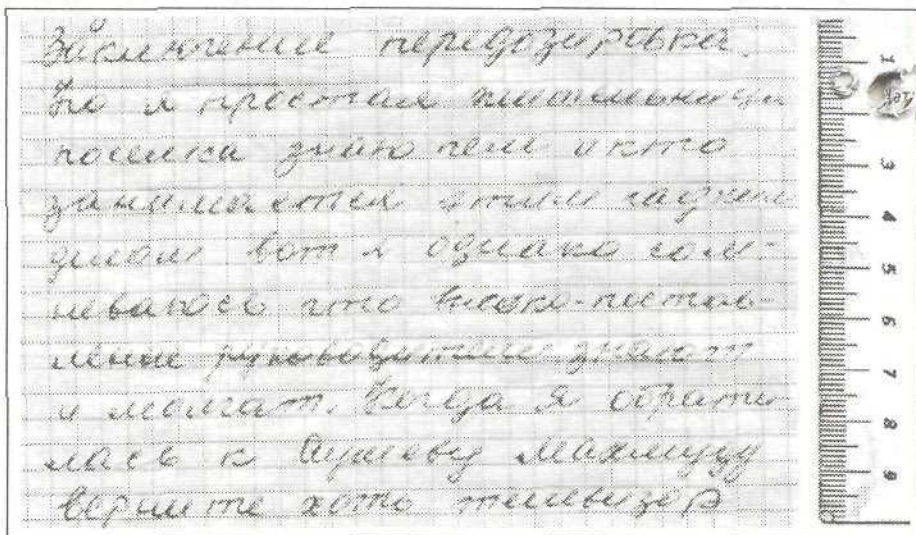 Заключение передозировка.
Но я простая жительница
поселка знаю кем и кто
занимается этим гадким
делом вот я однако сом-
неваюсь что высоко-постав-
леные руководители знают
и молчат. Когда я обрати
лась к Аушеву Махмуду
верните хоть телевизор
1
3
4
5
6
7
8
9